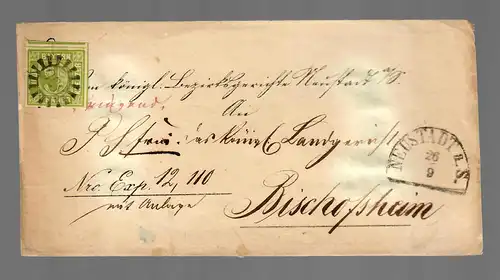 Vom königl. Bezirksgerichte Neustadt a/S.
Dringend.
An
das königl. Landgericht
Nro. Exp. 12,110
mit Anlage
Bischofsheim
NEUSTADT a. S.
26
9